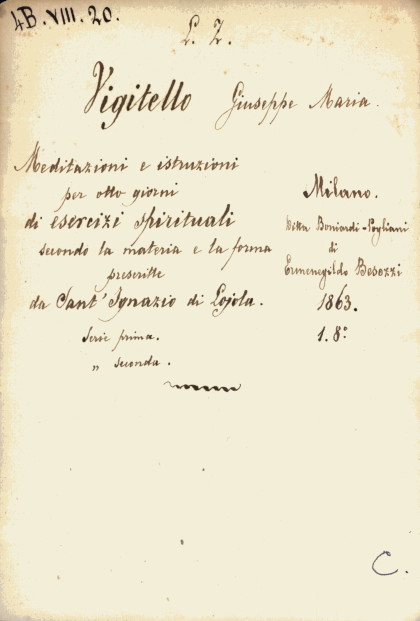 4B.VIII.20.
L. Z.
Vigitello Giuseppe Maria.
Meditazioni e istruzioni
per otto giorni
di esercizi spirituali
secondo la materia e la forma
prescritte
da Sant' Ignazio di Lojola.
Serie prima.
" seconda.
Milano.
Ditta Boniardi-Pogliani
di
Ermenegildo Besozzi
1863.
1. 8°
C.